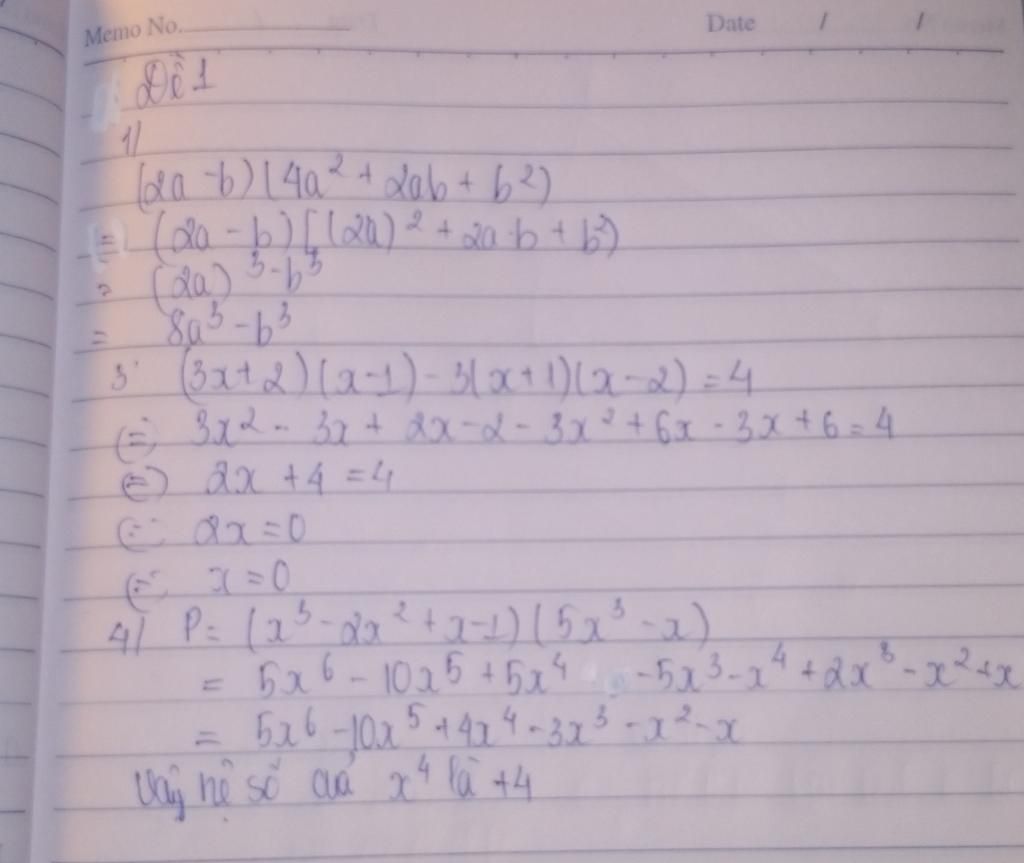 Memo No.
Date / /
Đề 1
1/
(2a - b)(4a² + 2ab + b²)
= (2a - b)[(2a)² + 2a.b + b²)
= (2a)³ - b³
= 8a³ - b³
3. (3x + 2)(x - 1) - 3(x + 1)(x - 2) = 4
(=) 3x² - 3x + 2x - 2 - 3x² + 6x - 3x + 6 = 4
(=) 2x + 4 = 4
(=) 2x = 0
(=) x = 0
4/ P = (x³ - 2x² + x - 1)(5x³ - x)
= 5x⁶ - 10x⁵ + 5x⁴ - 5x³ - x⁴ + 2x³ - x² + x
= 5x⁶ - 10x⁵ + 4x⁴ - 3x³ - x² - x
Vậy hệ số của x⁴ là +4